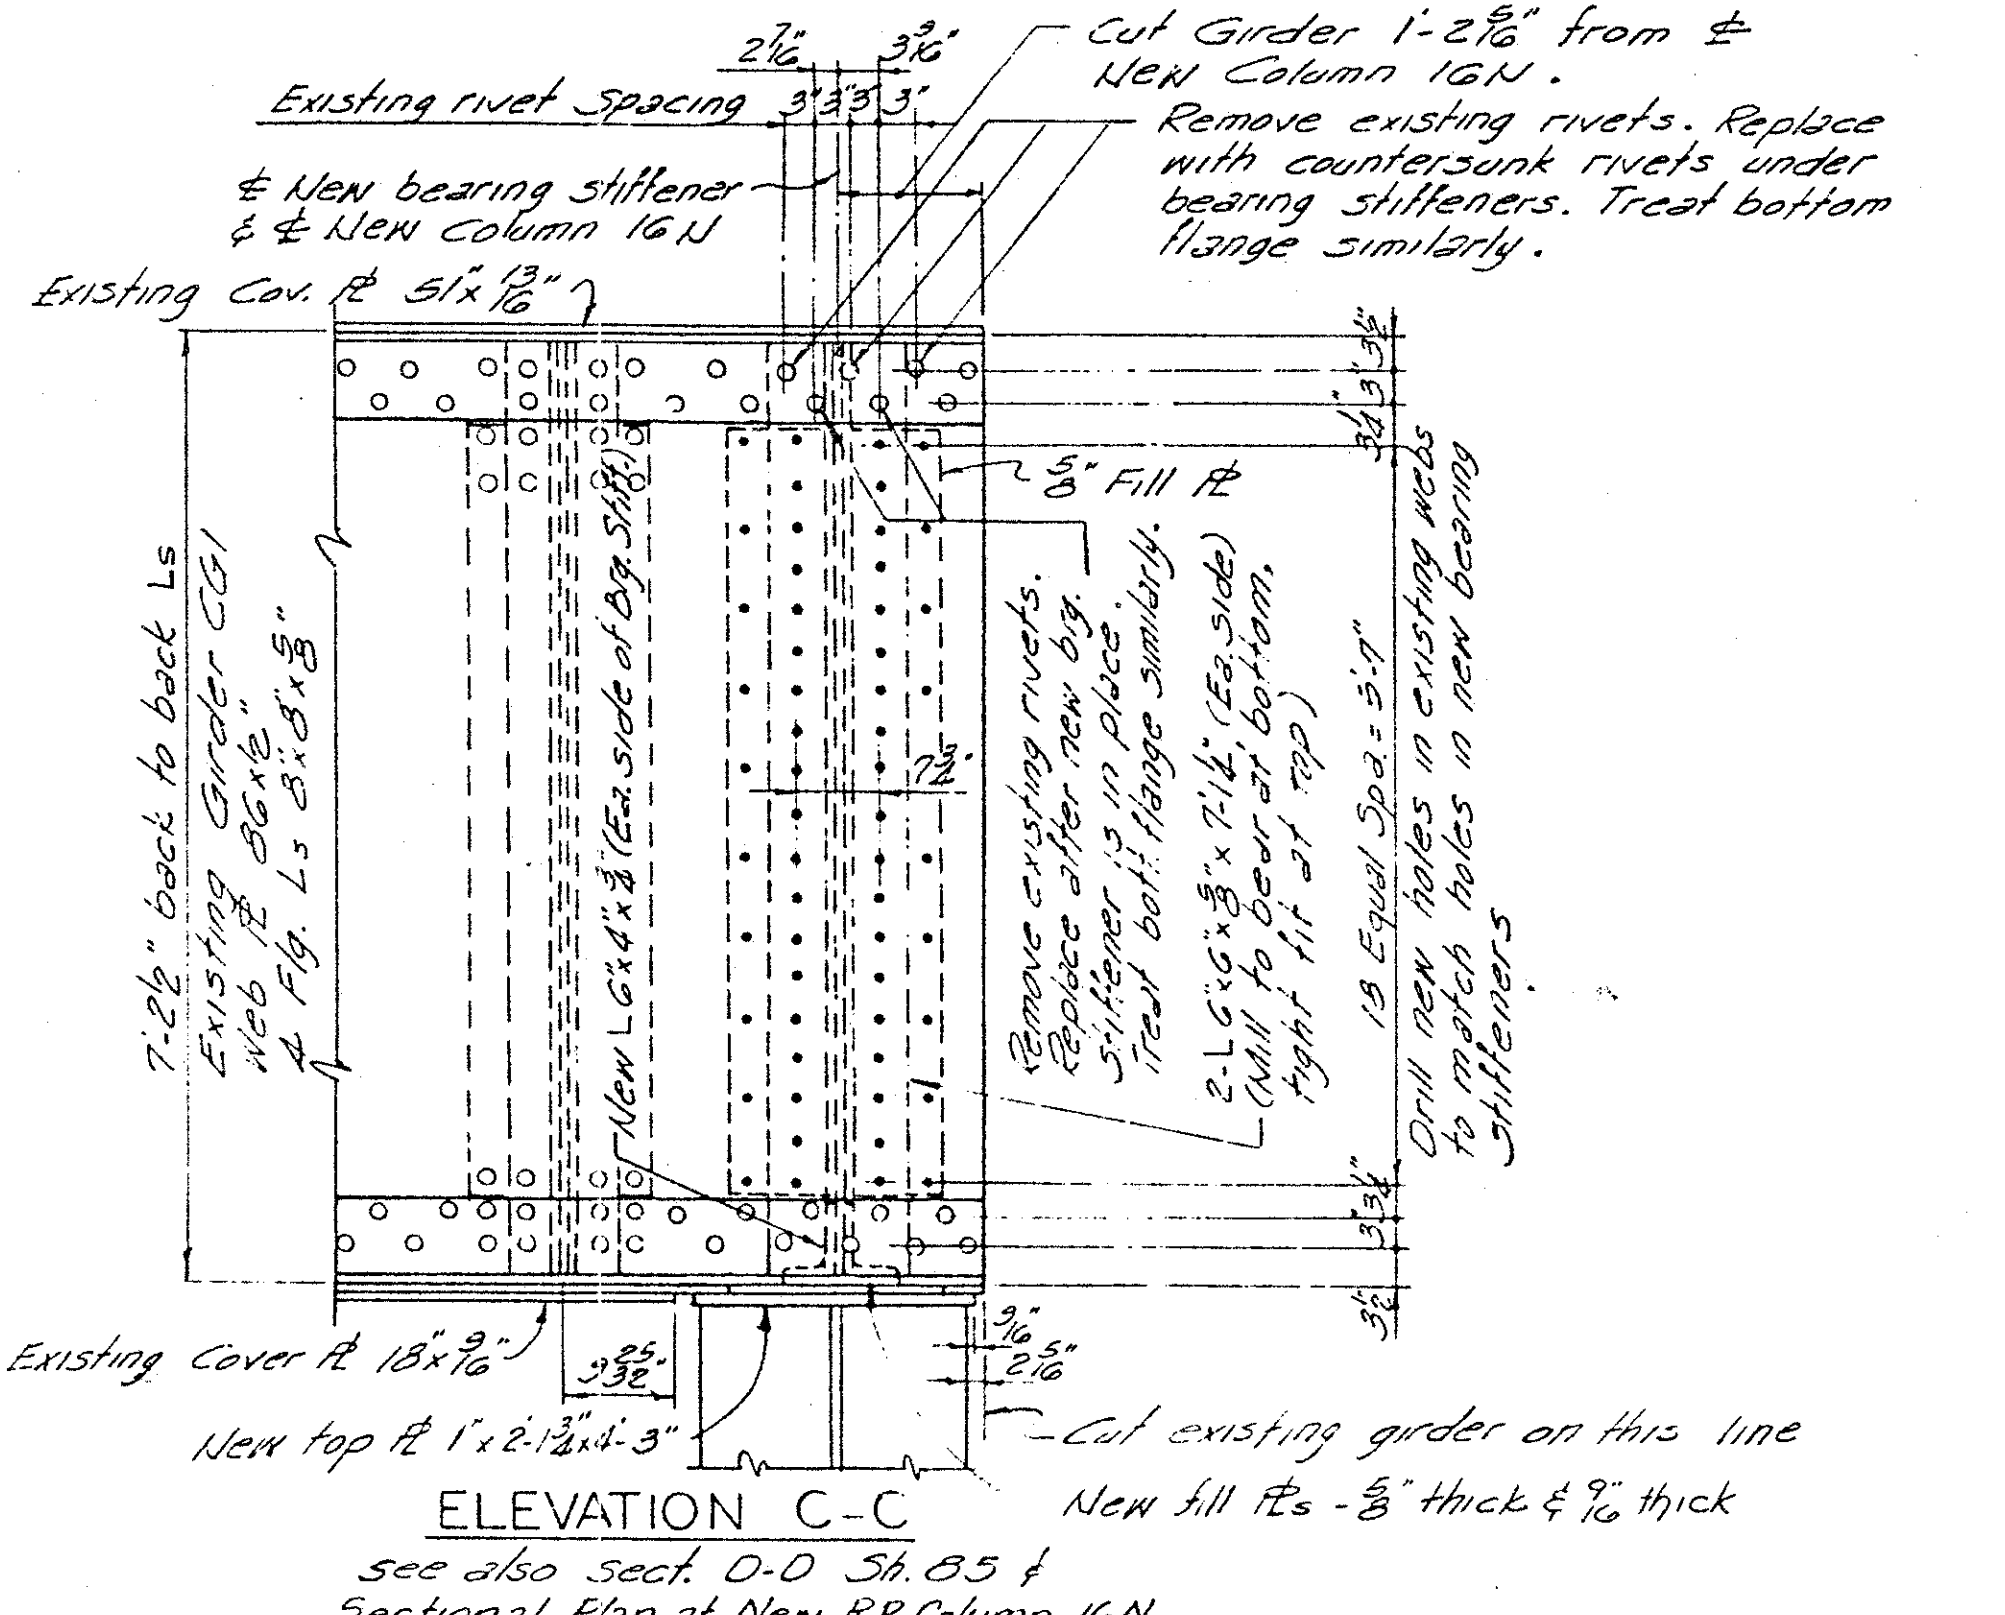 2 7/16"
3 9/16"
Cut Girder 1'-2 5/16" from ℄
New Column 16N.
Existing rivet spacing
3" 3" 3" 3"
Remove existing rivets. Replace
with countersunk rivets under
bearing stiffeners. Treat bottom
flange similarly.
℄ New bearing stiffener
& ℄ New Column 16N
Existing Cov. ℙ 51"x 13/16"
7'-2½" back to back Ls
Existing Girder CG1
Web ℙ 86x½"
4 Flg. Ls 8"x8"x5/8"
New L6"x4"x¾" (Ea. side of Brg. Stiff.)
7¾"
5/8" Fill ℙ
Remove existing rivets.
Replace after new brg.
stiffener is in place.
Treat bott. flange similarly.
2-L 6"x6"x5/8"x7'-1¼" (Ea. side)
(Mill to bear at bottom,
tight fit at top)
3½"
3"
3¼"
18 Equal Spa. = 5'-7"
3¼"
3"
3½"
Drill new holes in existing webs
to match holes in new bearing
stiffeners
Existing Cover ℙ 18"x 9/16"
9 25/32"
9/16"
2 5/16"
New top ℙ 1"x2'-1¾"x4'-3"
Cut existing girder on this line
New fill ℙs - 5/8" thick & 9/16" thick
ELEVATION C-C
see also Sect. D-D Sh. 85 &
Sectional Plan at New RR Column 16N